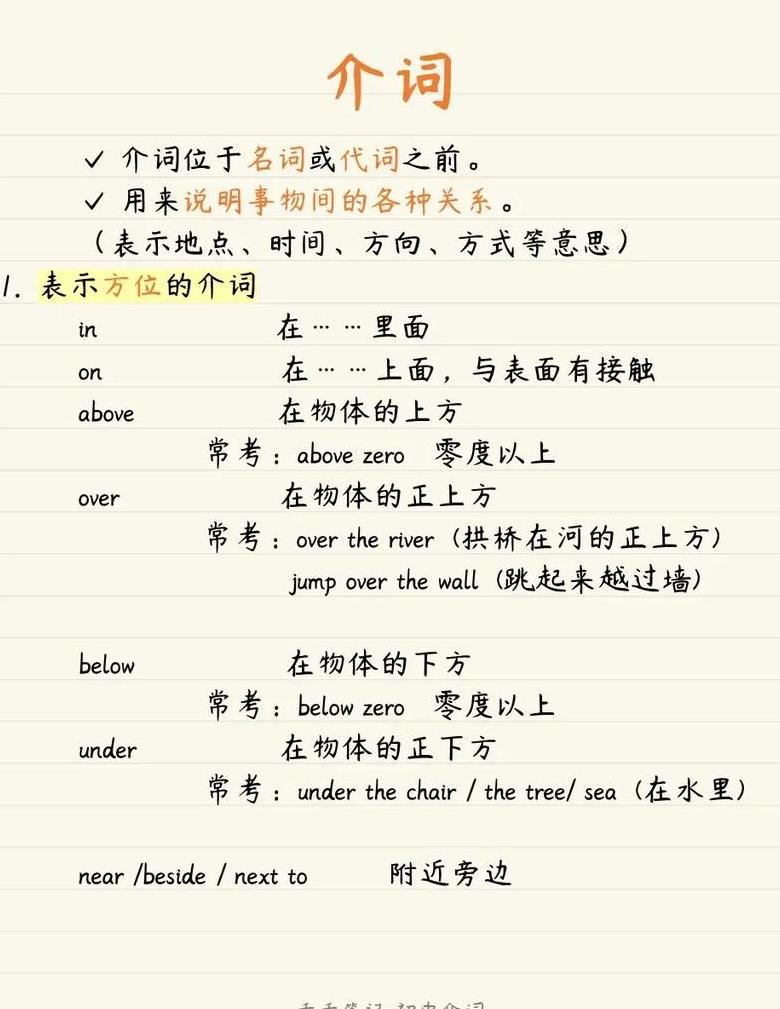 介词
✓ 介词位于名词或代词之前。
✓ 用来说明事物间的各种关系。
（表示地点、时间、方向、方式等意思）
1. 表示方位的介词
in 在……里面
on 在……上面，与表面有接触
above 在物体的上方
常考：above zero 零度以上
over 在物体的正上方
常考：over the river（拱桥在河的正上方）
jump over the wall（跳起来越过墙）
below 在物体的下方
常考：below zero 零度以上
under 在物体的正下方
常考：under the chair / the tree/ sea（在水里）
near /beside / next to 附近旁边